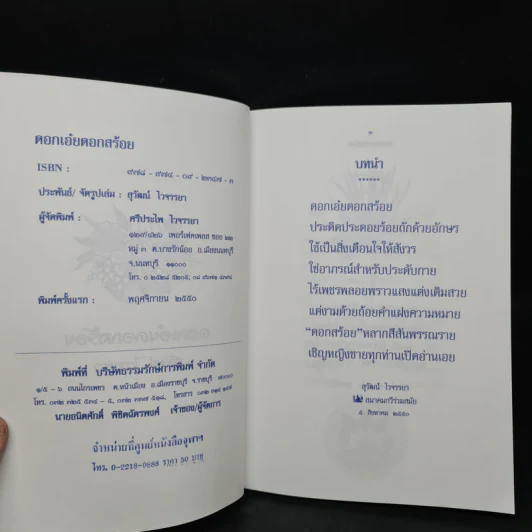 ดอกเอ๋ยดอกสร้อย
ISBN : ๙๗๘ - ๙๗๔ - ๐๙ - ๒๓๔๗ - ๓
ประพันธ์/ จัดรูปเล่ม : สุวัฒน์ ไวจรรยา
ผู้จัดพิมพ์ : ศรีประไพ ไวจรรยา
เพอร์เฟคเพลส ซอย
หมู่ ๓ ต.บางรักน้อย อ.เมืองนนทบุรี
จ.นนทบุรี ๑๑๐๐๐
โทร.
พิมพ์ครั้งแรก : พฤศจิกายน ๒๕๕๐
พิมพ์ที่ บริษัทธรรมรักษ์การพิมพ์ จำกัด
๑/๕ - ๖ ถนนไกรเพชร ต.หน้าเมือง อ.เมืองราชบุรี จ.ราชบุรี ๗๐๐๐๐
โทร. โทรสาร
นายธนิตศักดิ์ พิชิตฉัตรพงศ์ เจ้าของ/ผู้จัดการ
จำหน่ายที่ศูนย์หนังสือจุฬาฯ
โทร. 0-2218-9888 ราคา 50 บาท
บทนำ
******
ดอกเอ๋ยดอกสร้อย
ประดิดประดอยร้อยถักด้วยอักษร
ใช้เป็นสิ่งเตือนใจให้สังวร
ใช่อาภรณ์สำหรับประดับกาย
ไร้เพชรพลอยพราวแสงแต่งเติมสวย
แต่งามด้วยถ้อยคำแฝงความหมาย
“ดอกสร้อย” หลากสีสันพรรณราย
เชิญหญิงชายทุกท่านเปิดอ่านเอย
สุวัฒน์ ไวจรรยา
สมาคมกวีร่วมสมัย
๕ สิงหาคม ๒๕๕๐